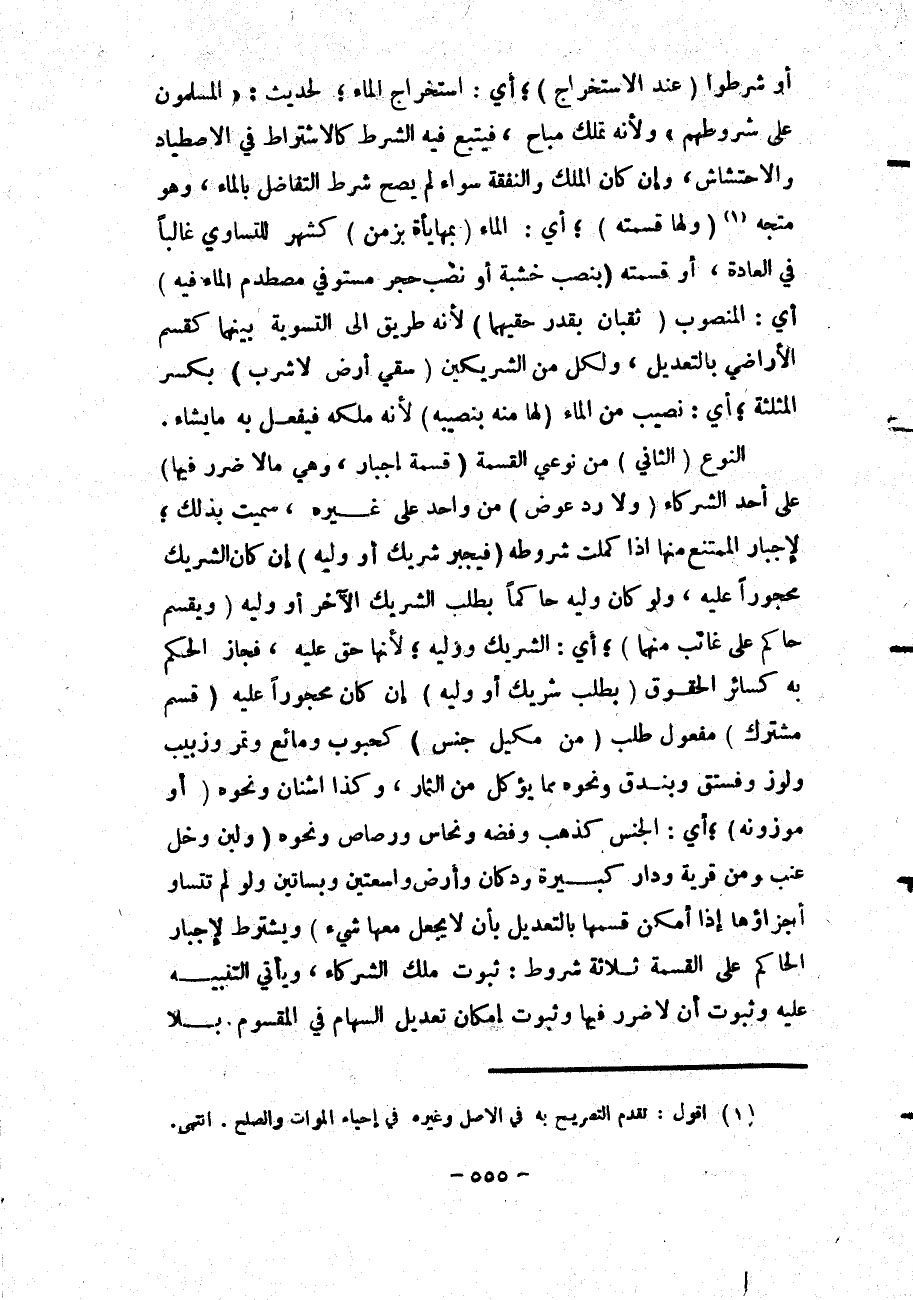 أو شرطوا ( عند الاستخراج ) ؛ أي : استخراج الماء ؛ لحديث : « المسلمون
على شروطهم » ولأنه تملك مباح ، فيتبع فيه الشرط كالاشتراط في الاصطياد
والاحتشاش ، وإن كان الملك والنفقة سواء لم يصح شرط التفاضل بالماء ، وهو
متجه (١) ( ولها قسمته ) ؛ أي : الماء ( بمهايأة بزمن ) كشهر للتساوي غالباً
في العادة ، أو قسمته (بنصب خشبة أو نصب حجر مستو في مصطدم الماء فيه )
أي : المنصوب ( ثقبان بقدر حقيهما ) لأنه طريق الى التسوية بينهما كقسم
الأراضي بالتعديل ، ولكل من الشريكين ( سقي أرض لاشرب ) بكسر
المثلثة ؛ أي : نصيب من الماء (لها منه بنصيبه) لأنه ملكه فيفعل به مايشاء .
النوع ( الثاني ) من نوعي القسمة ( قسمة إجبار ، وهي مالا ضرر فيها)
على أحد الشركاء ( ولا رد عوض ) من واحد على غيره ، سميت بذلك ؛
لإجبار الممتنع منها اذا كملت شروطه (فيجبر شريك أو وليه ) إن كان الشريك
محجوراً عليه ، ولو كان وليه حاكماً بطلب الشريك الآخر أو وليه ( ويقسم
حاكم على غائب منها ) ؛ أي : الشريك وؤليه ؛ لأنها حق عليه ، فجاز الحكم
به كسائر الحقوق ( بطلب شريك أو وليه ) إن كان محجوراً عليه ( قسم
مشترك ) مفعول طلب ( من مكيل جنس ) كحبوب ومائع وتمر وزبيب
ولوز وفستق وبندق ونحوه مما يؤكل من الثمار ، وكذا اشنان ونحوه ( أو
موزونه) ؛أي : الجنس كذهب وفضه ونحاس ورصاص ونحوه ( ولبن وخل
عنب ومن قرية ودار كبيرة ودكان وأرض واسعتين وبساتين ولو لم تتساو
أجزاؤها إذا أمكن قسمها بالتعديل بأن لايجعل معها شيء ) ويشترط لإجبار
الحاكم على القسمة ثلاثة شروط : ثبوت ملك الشركاء ، ويأتي التنبيه
عليه وثبوت أن لا ضرر فيها وثبوت إمكان تعديل السهام في المقسوم . بلا
(١) اقول : تقدم التصريح به في الاصل وغيره في إحياء الموات والصلح . انتهى.
- ٥٥٥ -